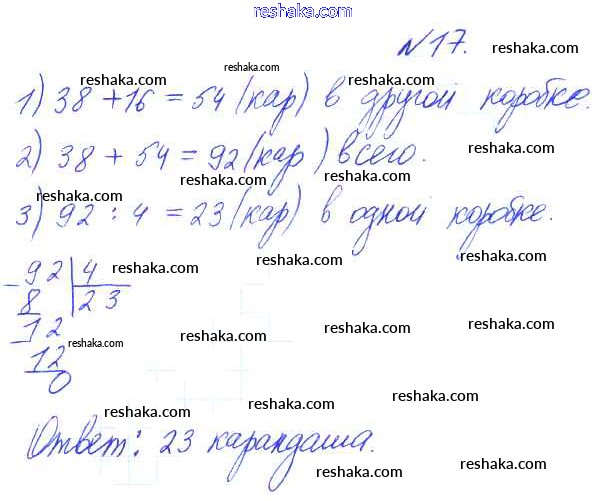 reshaka.com
№ 17. reshaka.com
reshaka.com reshaka.com
1) 38 + 16 = 54 (кар) в другой коробке.
reshaka.com reshaka.com reshaka.com
2) 38 + 54 = 92 (кар) всего.
reshaka.com reshaka.com reshaka.com
3) 92 : 4 = 23 (кар) в одной коробке.
92 4 reshaka.com reshaka.com reshaka.com
8 23
12 reshaka.com reshaka.com reshaka.com
12
0 reshaka.com reshaka.com reshaka.com
reshaka.com
Ответ: 23 карандаша.
reshaka.com reshaka.com
reshaka.com